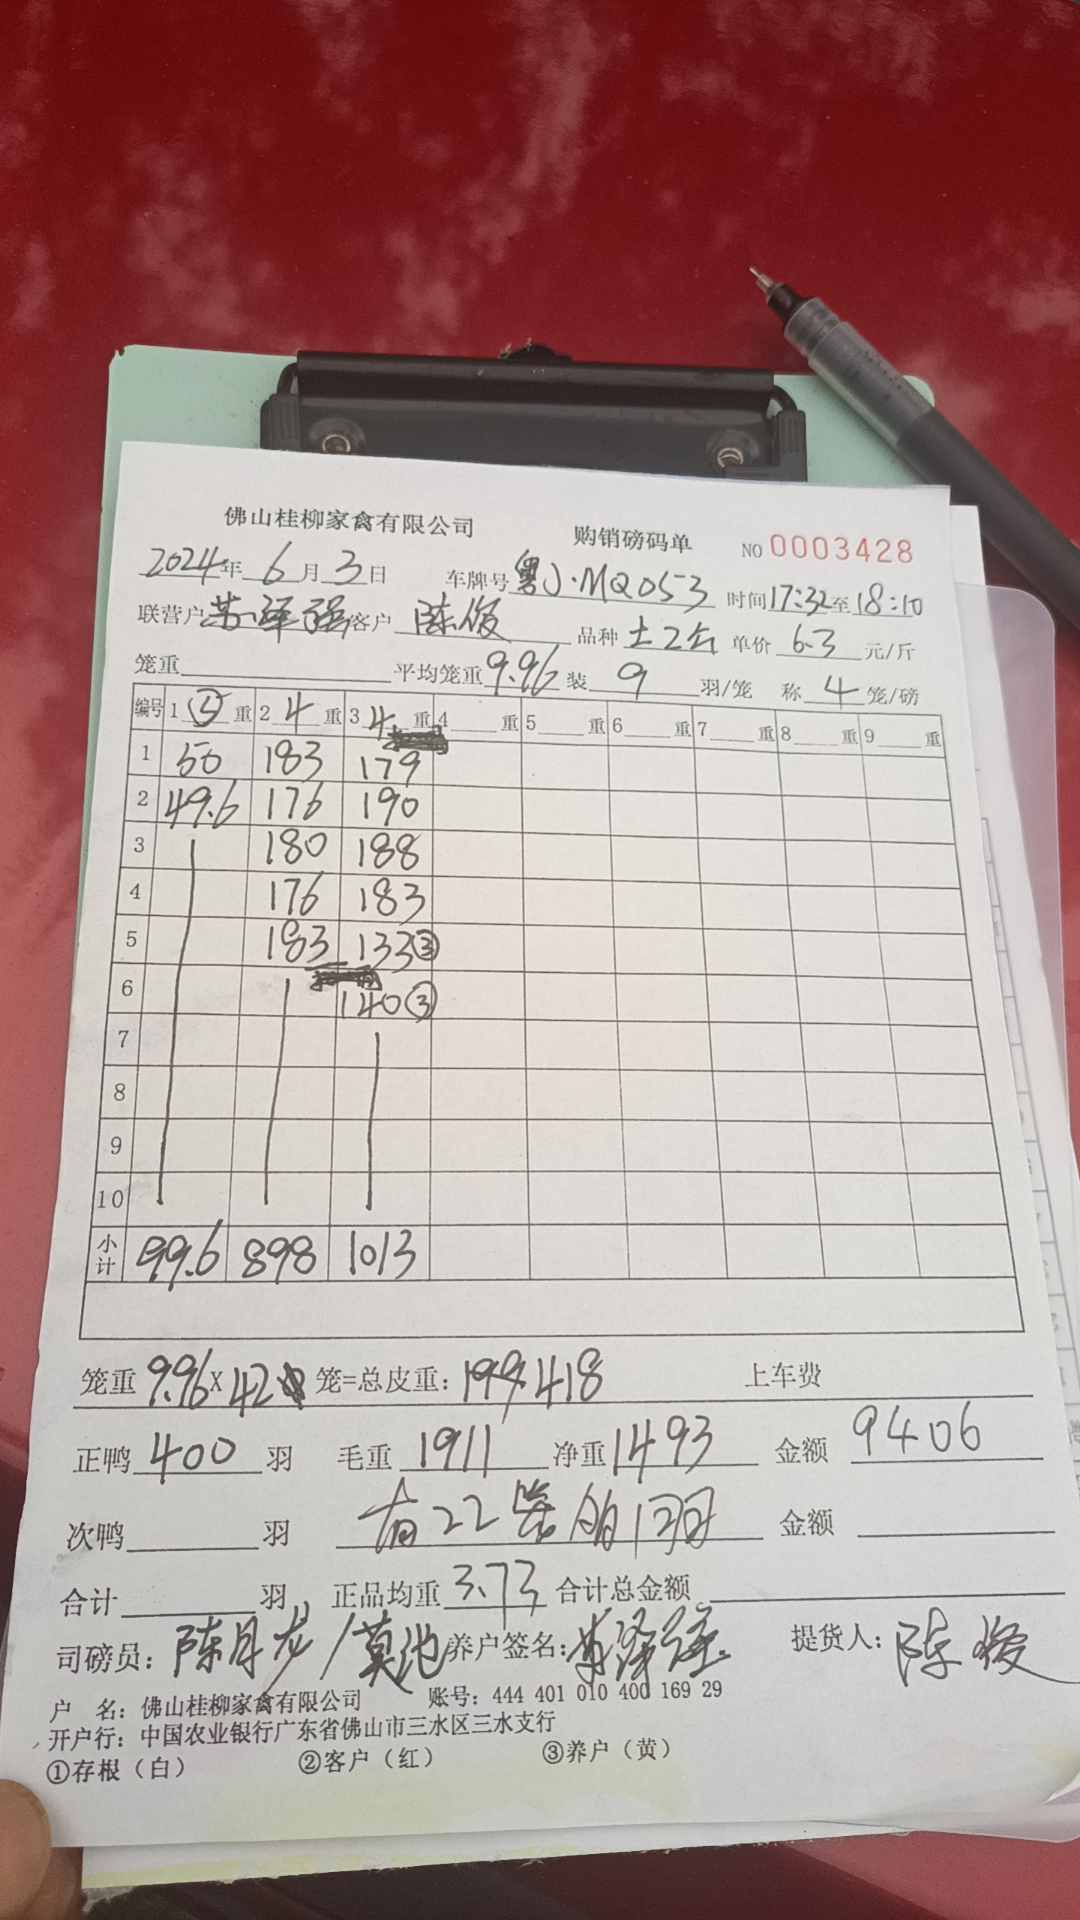 佛山桂柳家禽有限公司 购销磅码单 NO 0003428
2024年 6 月 3 日 车牌号 粤J·MQ053 时间 17:32 至 18:10
联营户 苏泽强 客户 陈俊 品种 土2公 单价 6.3 元/斤
笼重 平均笼重 9.96 装 9 羽/笼 称 4 笼/磅
编号 1 ⑤ 重 2 4 重 3 4 重 4 重 5 重 6 重 7 重 8 重 9 重
1 50 183 179
2 49.6 176 190
3 180 188
4 176 183
5 183 133③
6 140③
7
8
9
10
小计 99.6 898 1013
笼重 9.96 X 42 笼=总皮重: 418 上车费
正鸭 400 羽 毛重 1911 净重 1493 金额 9406
次鸭 羽 有22笼 羽 金额
合计 羽 正品均重 3.73 合计总金额
司磅员: 陈月龙/莫池 养户签名: 苏泽强 提货人: 陈俊
户 名: 佛山桂柳家禽有限公司 账号: 444 401 010 400 169 29
开户行: 中国农业银行广东省佛山市三水区三水支行
①存根（白） ②客户（红） ③养户（黄）